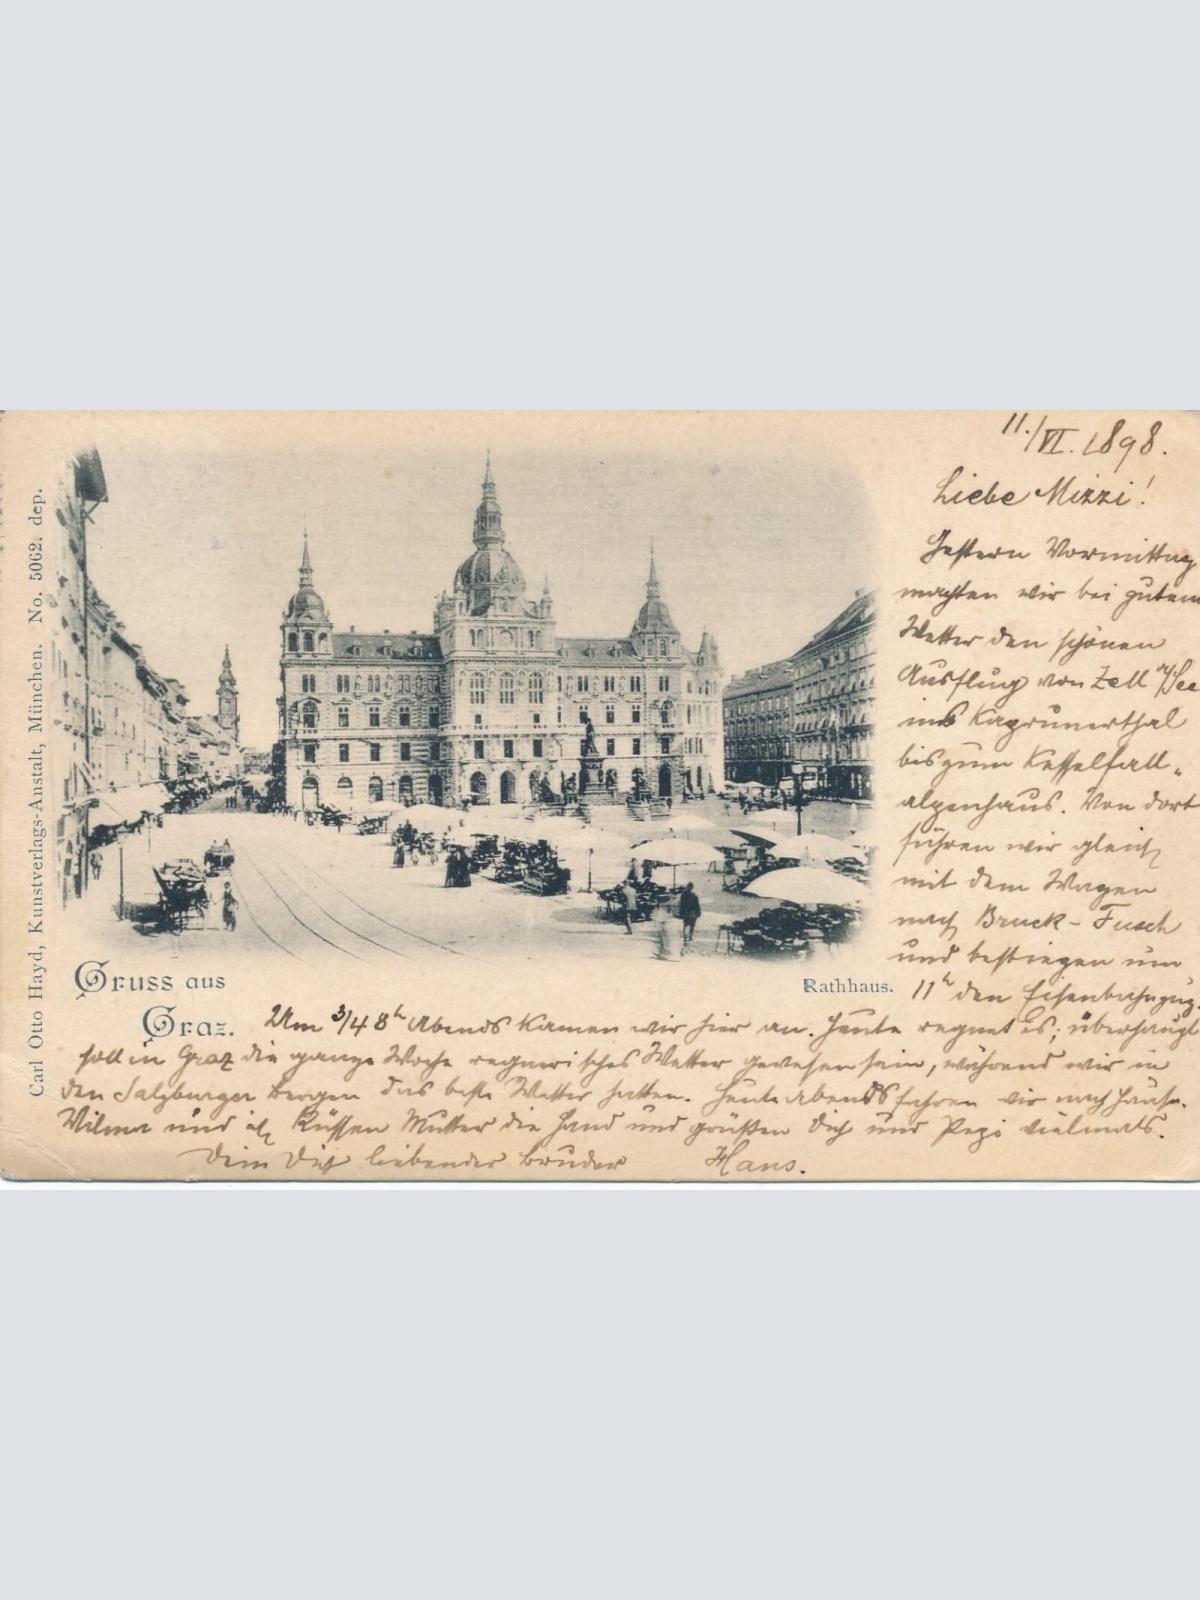 Carl Otto Hayd, Kunstverlags-Anstalt, München. No. 5062. dep.
11./VI. 1898.
Liebe Mizzi!
Gestern Vormittag
machten wir bei gutem
Wetter den schönen
Ausflug von Zell a/See
ins Kaprunerthal
bis zum Kesselfall-
alpenhaus. Von dort
fuhren wir gleich
mit dem Wagen
nach Bruck-Fusch
und bestiegen um
11h den Eisenbahnzug.
Gruss aus
Graz.
Rathhaus.
Um 3/4 8h Abends kamen wir hier an. Heute regnet es; überhaupt
soll in Graz die ganze Woche regnerisches Wetter gewesen sein, während wir in
den Salzburger Bergen das beste Wetter hatten. Heute abends fahren wir nach Hause.
Vilma und ich küssen Mutter die Hand und grüßen Dich und Pepi vielmals.
Dein Dich liebender Bruder Hans.